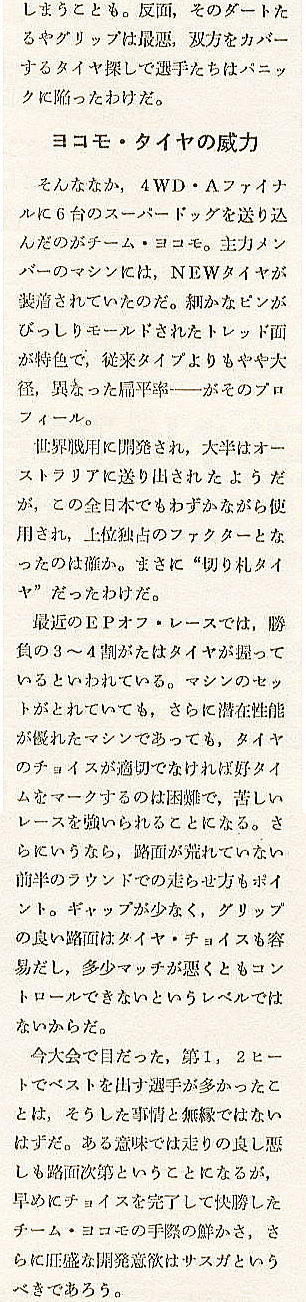 しまうことも。反面，そのダートた
るやグリップは最悪，双方をカバー
するタイヤ探しで選手たちはパニッ
クに陥ったわけだ。
ヨコモ・タイヤの威力
そんななか，4WD・Aファイナ
ルに6台のスーパードッグを送り込
んだのがチーム・ヨコモ。主力メン
バーのマシンには，NEWタイヤが
装着されていたのだ。細かなピンが
びっしりモールドされたトレッド面
が特色で，従来タイプよりもやや大
径，異なった扁平率——がそのプロ
フィール。
世界戦用に開発され，大半はオー
ストラリアに送り出されたようだ
が，この全日本でもわずかながら使
用され，上位独占のファクターとな
ったのは確か。まさに“切り札タイ
ヤ”だったわけだ。
最近のEPオフ・レースでは，勝
負の3〜4割がたはタイヤが握って
いるといわれている。マシンのセッ
トがとれていても，さらに潜在性能
が優れたマシンであっても，タイヤ
のチョイスが適切でなければ好タイ
ムをマークするのは困難で，苦しい
レースを強いられることになる。さ
らにいうなら，路面が荒れていない
前半のラウンドでの走らせ方もポイ
ント。ギャップが少なく，グリップ
の良い路面はタイヤ・チョイスも容
易だし，多少マッチが悪くともコン
トロールできないというレベルでは
ないからだ。
今大会で目だった，第1，2ヒー
トでベストを出す選手が多かったこ
とは，そうした事情と無縁ではない
はずだ。ある意味では走りの良し悪
しも路面次第ということになるが，
早めにチョイスを完了して快勝した
チーム・ヨコモの手際の鮮かさ，さ
らに旺盛な開発意欲はサスガという
べきであろう。